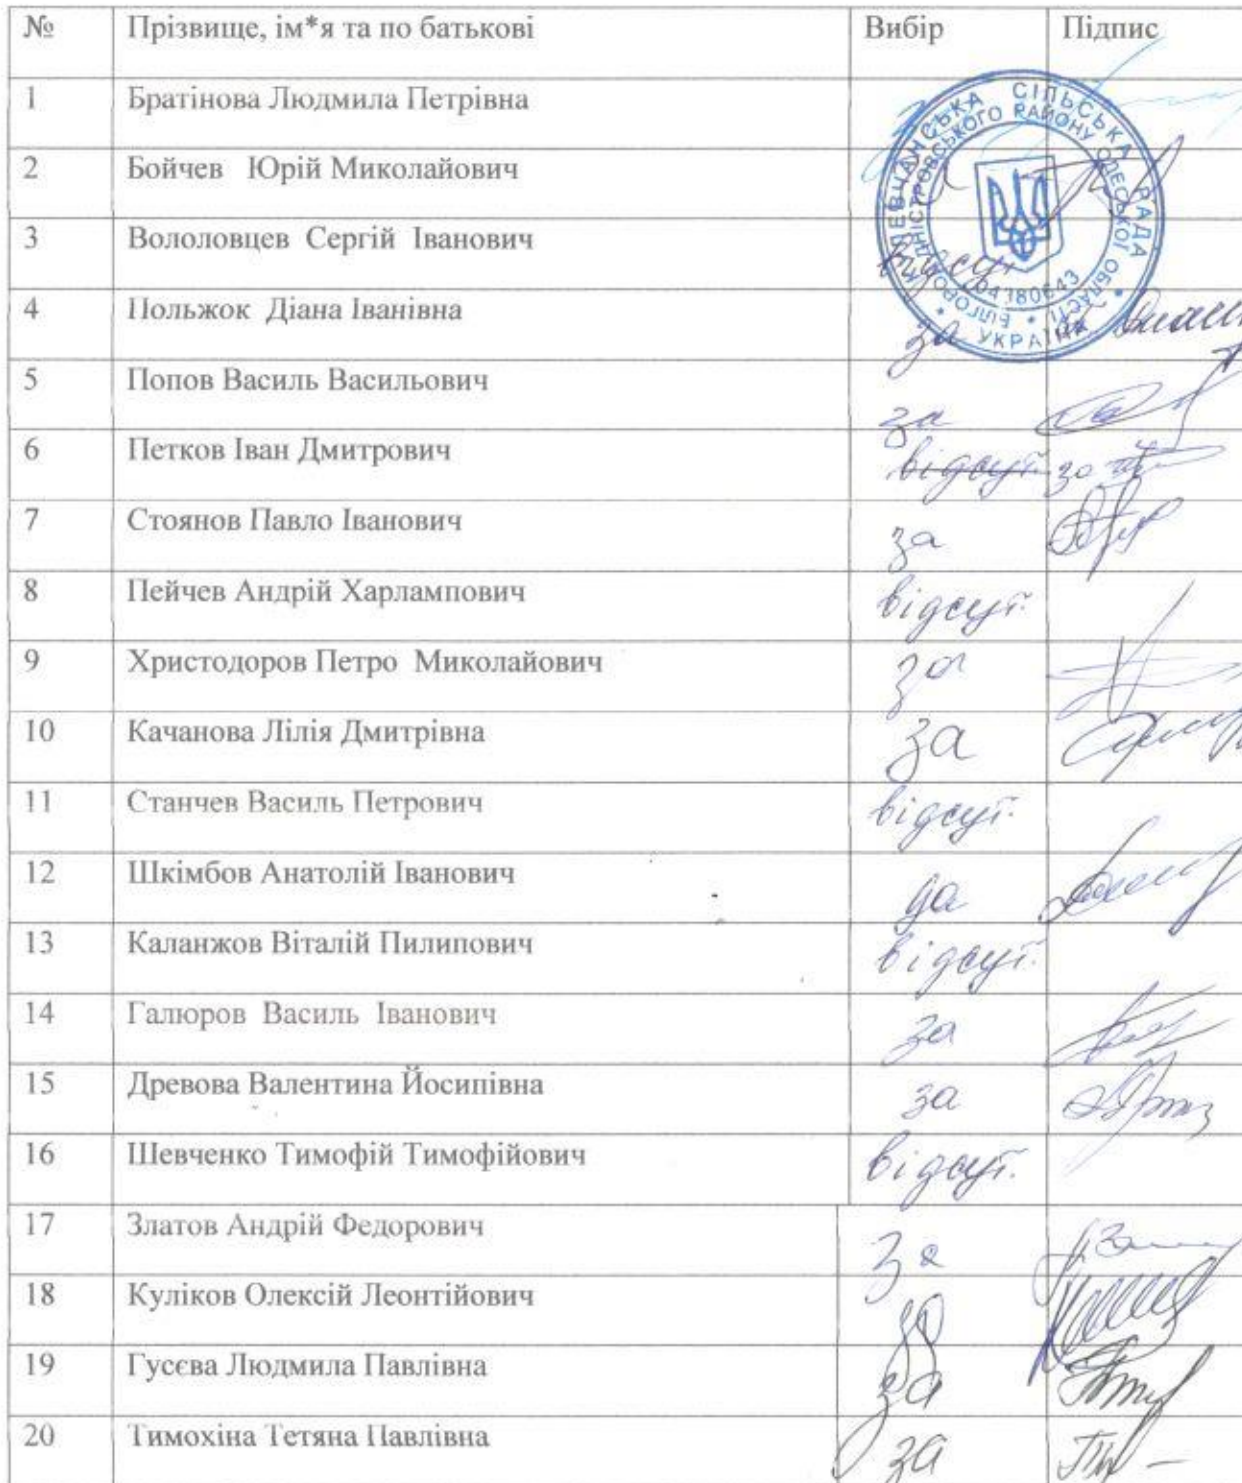 № Прізвище, ім*я та по батькові Вибір Підпис
1 Братінова Людмила Петрівна
2 Бойчев Юрій Миколайович
3 Вололовцев Сергій Іванович відсут
4 Польжок Діана Іванівна за
5 Попов Василь Васильович за
6 Петков Іван Дмитрович відсут. за
7 Стоянов Павло Іванович за
8 Пейчев Андрій Харлампович відсут.
9 Христодоров Петро Миколайович за
10 Качанова Лілія Дмитрівна за
11 Станчев Василь Петрович відсут.
12 Шкімбов Анатолій Іванович да
13 Каланжов Віталій Пилипович відсут.
14 Галюров Василь Іванович за
15 Древова Валентина Йосипівна за
16 Шевченко Тимофій Тимофійович відсут.
17 Златов Андрій Федорович за
18 Куліков Олексій Леонтійович
19 Гусєва Людмила Павлівна за
20 Тимохіна Тетяна Павлівна за
СІЛЬСЬКА РАДА
РАЙОНУ ОДЕСЬКОЇ ОБЛАСТІ
04380643
УКРАЇНА